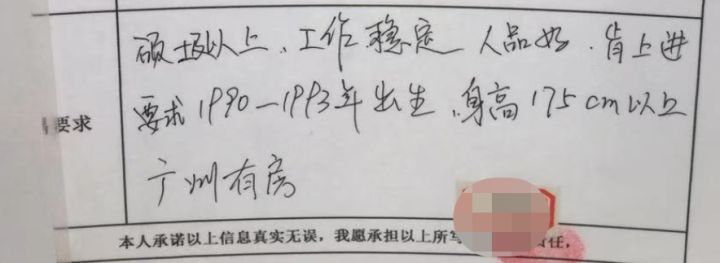 硕士及以上、工作稳定 人品好、肯上进
要求1990—1993年出生、身高175cm以上
要求
广州有房
本人承诺以上信息真实无误，我愿承担以上所写 责任，